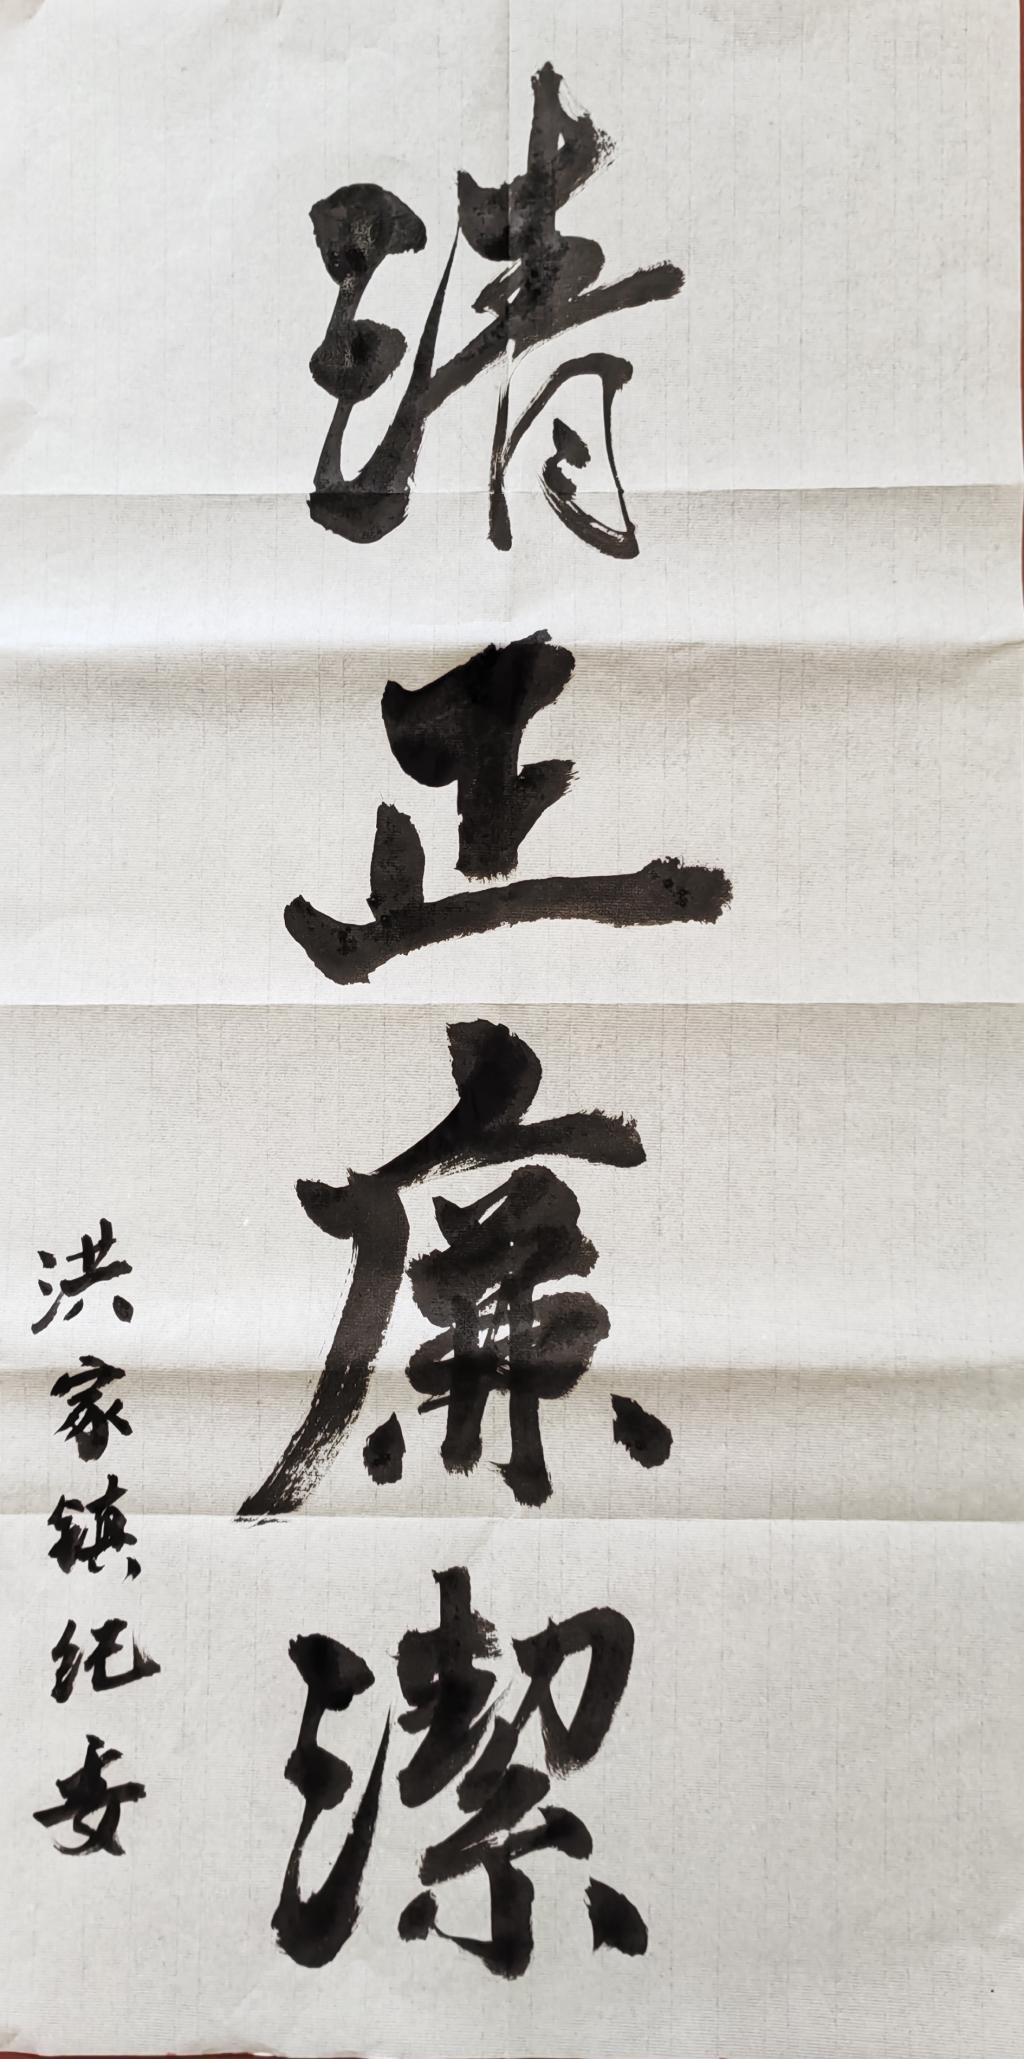 清正廉潔
洪家镇纪委